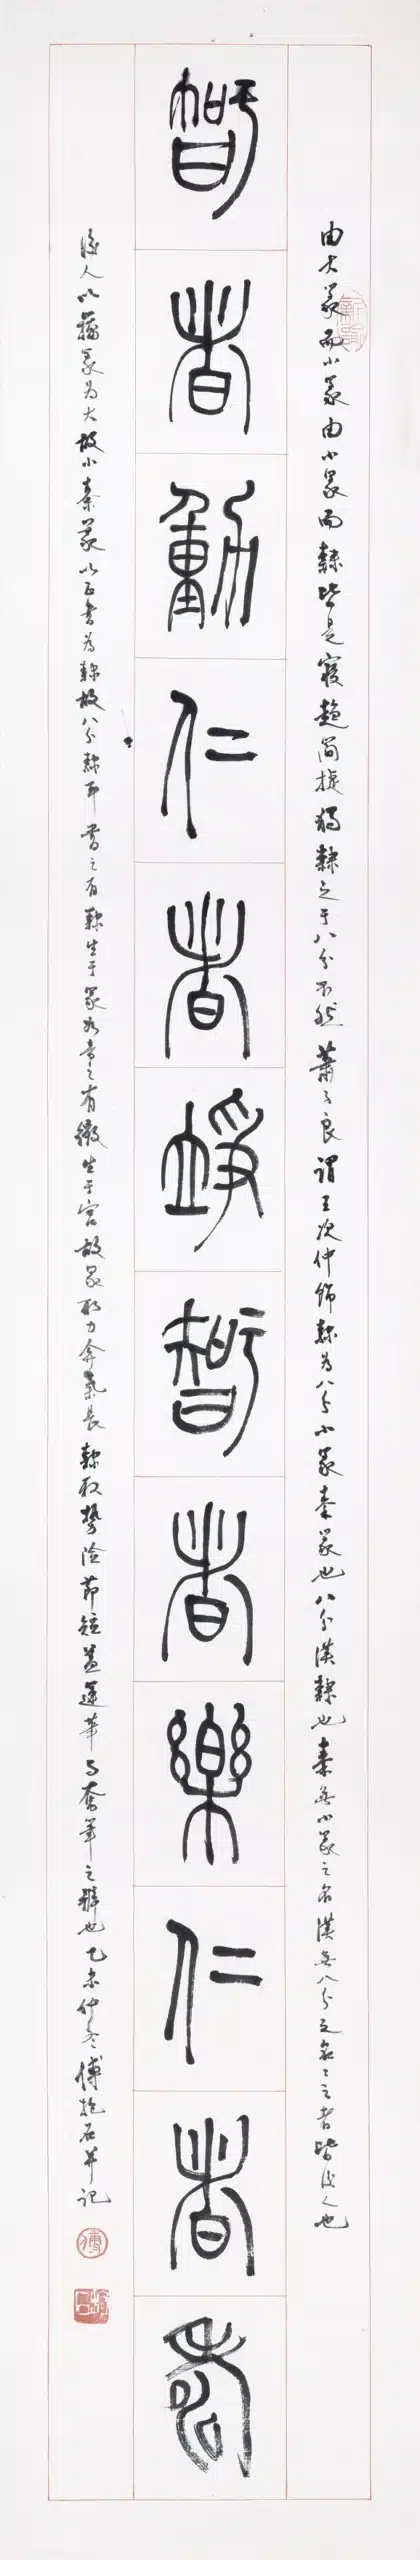 由大篆而小篆由小篆而隸皆是寖趨簡捷獨隸之于八分不然蕭子良謂王次仲飾隸為八分小篆秦篆也八分漢隸也秦無小篆之名漢無八分之名名之者皆後人也
智者動仁者静智者樂仁者壽
後人以籀篆為大故小秦篆以正書為隸故八分隸耳書之有隸生于篆如音之有徵生于宮故篆取力弇氣長隸取勢險節短蓋運筆與奮筆之辨也乙未仲冬傅抱石并記
傅